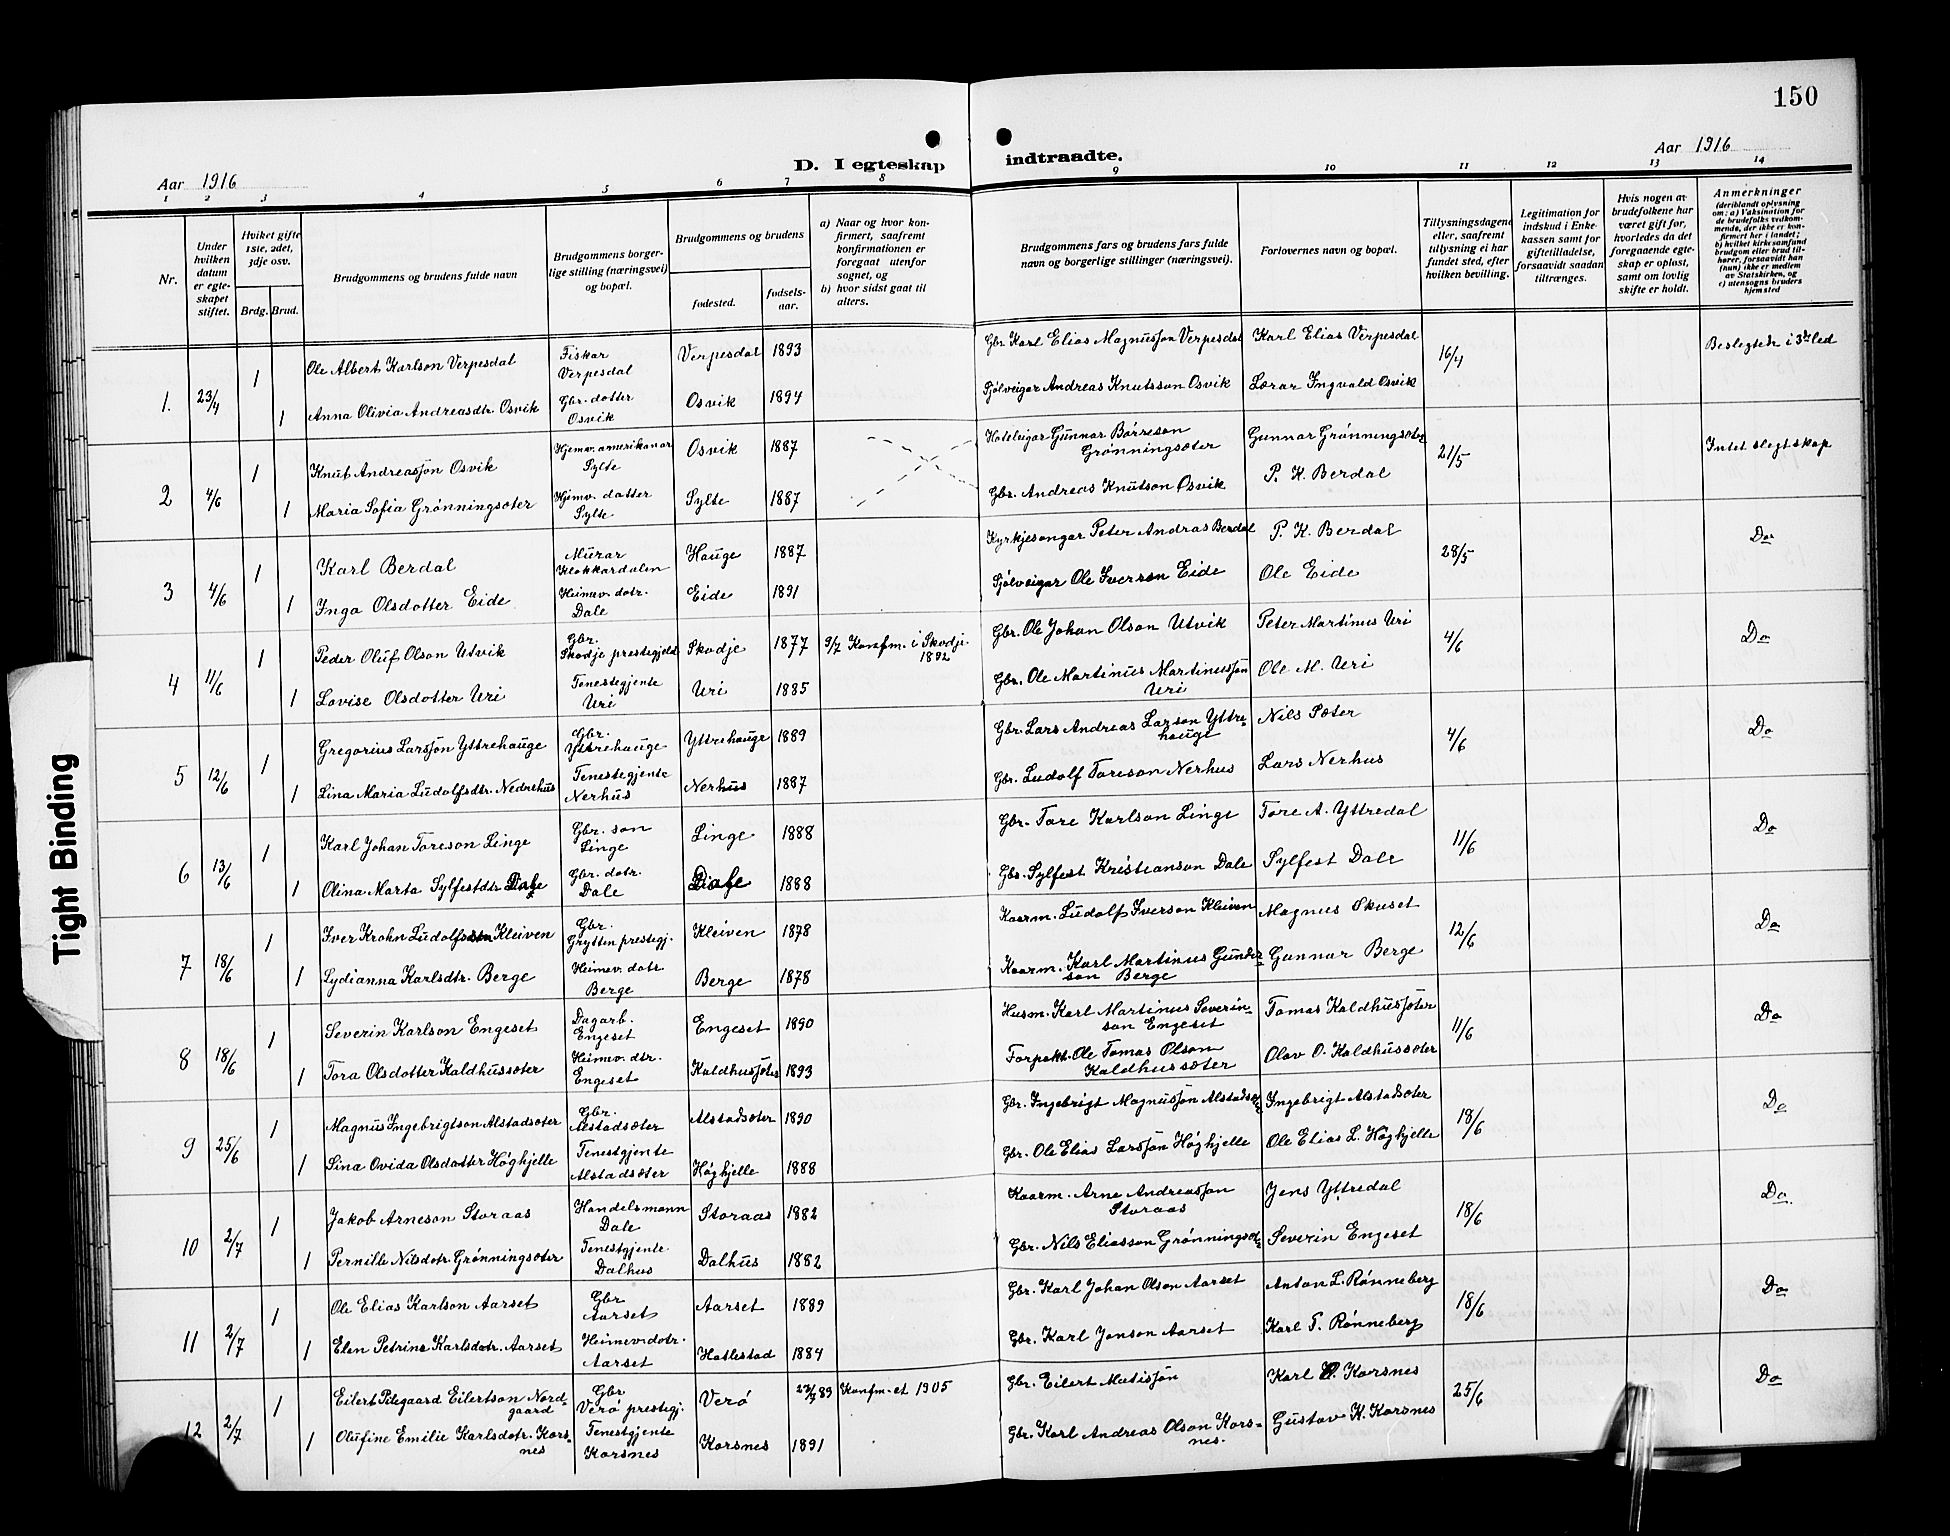 150
D. I egteskap indtraadte.
Aar 1916
Aar 1916
1 2 3 4 5 6 7 8 9 10 11 12 13 14
Nr.
Under hvilken datum er egteskapet stiftet.
Hviket gifte 1ste, 2det, 3dje osv.
Brdg. Brud.
Brudgommens og brudens fulde navn
Brudgommens borgerlige stilling (næringsvei) og bopæl.
Brudgommens og brudens
fødested.
fødselsaar.
a) Naar og hvor konfirmert, saafremt konfirmationen er foregaat utenfor sognet, og
b) hvor sidst gaat til alters.
Brudgommens fars og brudens fars fulde navn og borgerlige stillinger (næringsvei).
Forlovernes navn og bopæl.
Tillysningsdagene eller, saafremt tillysning ei har fundet sted, efter hvilken bevilling.
Legitimation for indskud i Enkekassen samt for giftetilladelse, forsaavidt saadan tiltrænges.
Hvis nogen av brudefolkene har været gift før, hvorledes da det foregaaende egteskap er opløst, samt om lovlig skifte er holdt.
Anmerkninger
(deriblandt oplysning om: a) Vaksination for de brudefolks vedkommende, der ikke er konfirmert her i landet; b) hvilket kirkesamfund brudgom eller brud tilhører, forsaavidt han (hun) ikke er medlem av Statskirken, og c) utensogns bruders hjemsted
1. 23/4 1 Ole Albert Karlson Verpesdal Fiskar Verpesdal Verpesdal 1893 Gbr. Karl Elias Magnusson Verpesdal Karl Elias Verpesdal 16/4 Beslegtede i 3die led
1 Anna Olivia Andreasdtr. Osvik Gbr. dotter Osvik Osvik 1894 Sjølveigar Andreas Knutsson Osvik Lærar Ingvald Osvik
2 4/6 1 Knut Andreasson Osvik Hjemv. amerikanar Sylte Osvik 1887 Hoteleigar Gunnar Børreson Grønningsæter Gunnar Grønningsæter 21/5 Intet slegtskap
1 Maria Sofia Grønningsæter Hjemv. datter Sylte Sylte 1887 Gbr. Andreas Knutson Osvik P. K. Berdal
3 4/6 1 Karl Berdal Murar Klokkardalen Hauge 1887 Kyrkjesongar Peter Andras Berdal P. K. Berdal 28/5 Do
1 Inga Olsdotter Eide Heimev. dotr. Dale Eide 1891 Sjølveigar Ole Iverson Eide Ole Eide
4 11/6 1 Peder Oluf Olson Utvik Gbr. Skodje prestegjeld Skodje 1877 9/7 Konfm. i Skodje 1892 Gbr. Ole Johan Olson Utvik Peter Martinus Uri 4/6 Do
1 Lovise Olsdotter Uri Tenestegjente Uri Uri 1885 Gbr. Ole Martinus Martinusson Uri Ole M. Uri
5 12/6 1 Gregorius Larsson Yttrehauge Gbr. Yttrehauge Yttrehauge 1889 Gbr. Lars Andreas Larson Yttrehauge Nils Sæter 4/6 Do
1 Lina Maria Ludolfsdtr. Nedrehus Tenestegjente Nerhus Nerhus 1887 Gbr. Ludolf Toreson Nerhus Lars Nerhus
6 13/6 1 Karl Johan Toreson Linge Gbr. son Linge Linge 1888 Gbr. Tore Karlson Linge Tore A. Yttredal 11/6 Do
1 Olina Marta Sylfestdtr. Dale Gbr. dotr. Dale Dale 1888 Gbr. Sylfest Kristianson Dale Sylfest Dale
7 18/6 1 Iver Krohn Ludolfsson Kleiven Gbr. Grytten prestegj. Kleiven 1878 Kaarm. Ludolf Iverson Kleiven Magnus Skuset 12/6 Do
1 Lydianna Karlsdtr. Berge Heimev. dotr Berge Berge 1878 Kaarm. Karl Martinus Gunderson Berge Gunnar Berge
8 18/6 1 Severin Karlson Engeset Dagarb. Engeset Engeset 1890 Husm. Karl Martinus Severinson Engeset Tomas Kaldhussæter 11/6 Do
1 Tora Olsdotter Kaldhussæter Heimev. dtr. Engeset Kaldhussæter 1893 Forpakt. Ole Tomas Olson Kaldhussæter Olav O. Kaldhussæter
9 25/6 1 Magnus Ingebrigtson Alstadsæter Gbr. Alstadsæter Alstadsæter 1890 Gbr. Ingebrigt Magnusson Alstadsæter Ingebrigt Alstadsæter 18/6 Do
1 Sina Ovida Olsdotter Høghjelle Tenestgjente Alstadsæter Høghjelle 1888 Gbr. Ole Elias Larsson Høghjelle Ole Elias L. Høghjelle
10 2/7 1 Jakob Arneson Storaas Handelsmann Dale Storaas 1882 Kaarm. Arne Andreasson Storaas Jens Yttredal 18/6 Do.
1 Pernille Nilsdotr. Grønningsæter Tenestgjente Dalhus Dalhus 1882 Gbr. Nils Eliasson Grønningsæt. Severin Engeset
11 2/7 1 Ole Elias Karlson Aarset Gbr Aarset Aarset 1889 Gbr. Karl Johan Olson Aarset Anton L. Rønneberg 18/6 Do
1 Elen Petrine Karlsdotr. Aarset Heimev. dotr. Aarset Hatlestad 1884 Gbr. Karl Jonson Aarset Karl T. Rønneberg
12 2/7 1 Eilert Pilegaard Eilertson Nordgaard Gbr Verø prestegj. Verø 89 Konfm-et 1905 Gbr. Eilert Matisson Karl Korsnes 25/6 Do
1 Olufine Emilie Karlsdotr. Korsnes Tenestgjente Korsnes Korsnes 1891 Gbr. Karl Andreas Olson Korsnes. Gustav K. Korsnes
Tight Binding